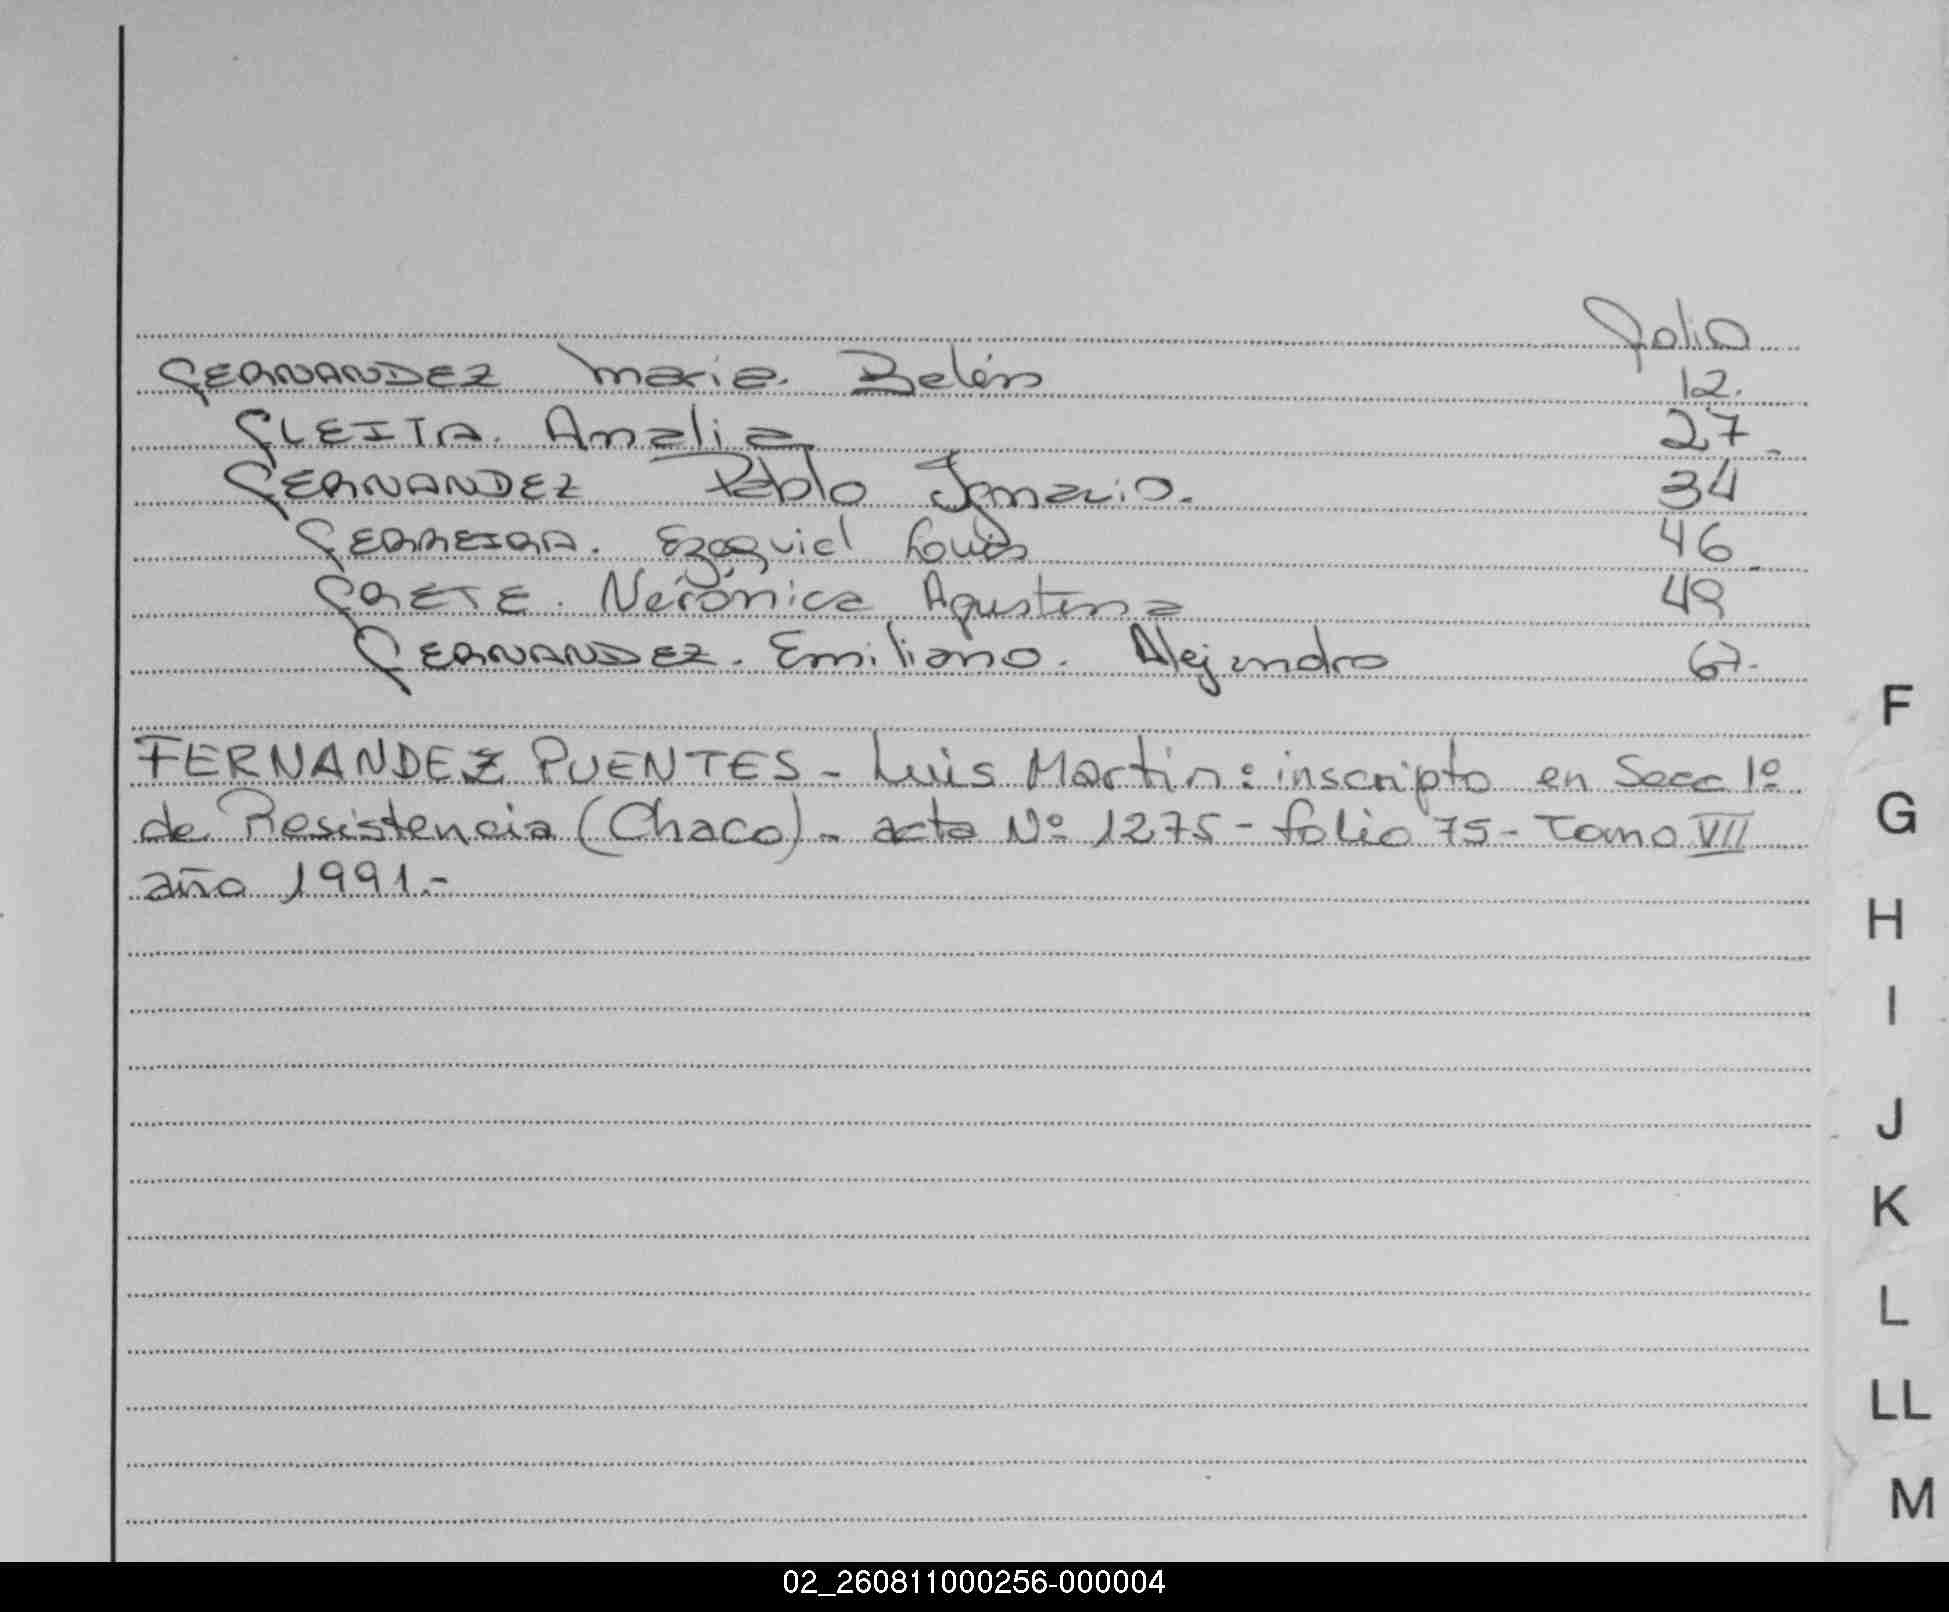 Folio
FERNANDEZ Maria Belén 12.
FLEITA. Analia 27
FERNANDEZ Pablo Ignacio. 34
FERREIRA. Ezequiel Louis 46
FRETE. Verónica Agustina 49
FERNANDEZ. Emiliano. Alejandro 67.
FERNANDEZ PUENTES - Luis Martin: inscripto en Secc 1º
de Resistencia (Chaco) - acta Nº 1275 - folio 75 - Tomo VII
año 1991.-
F
G
H
I
J
K
L
LL
M
02_260811000256-000004